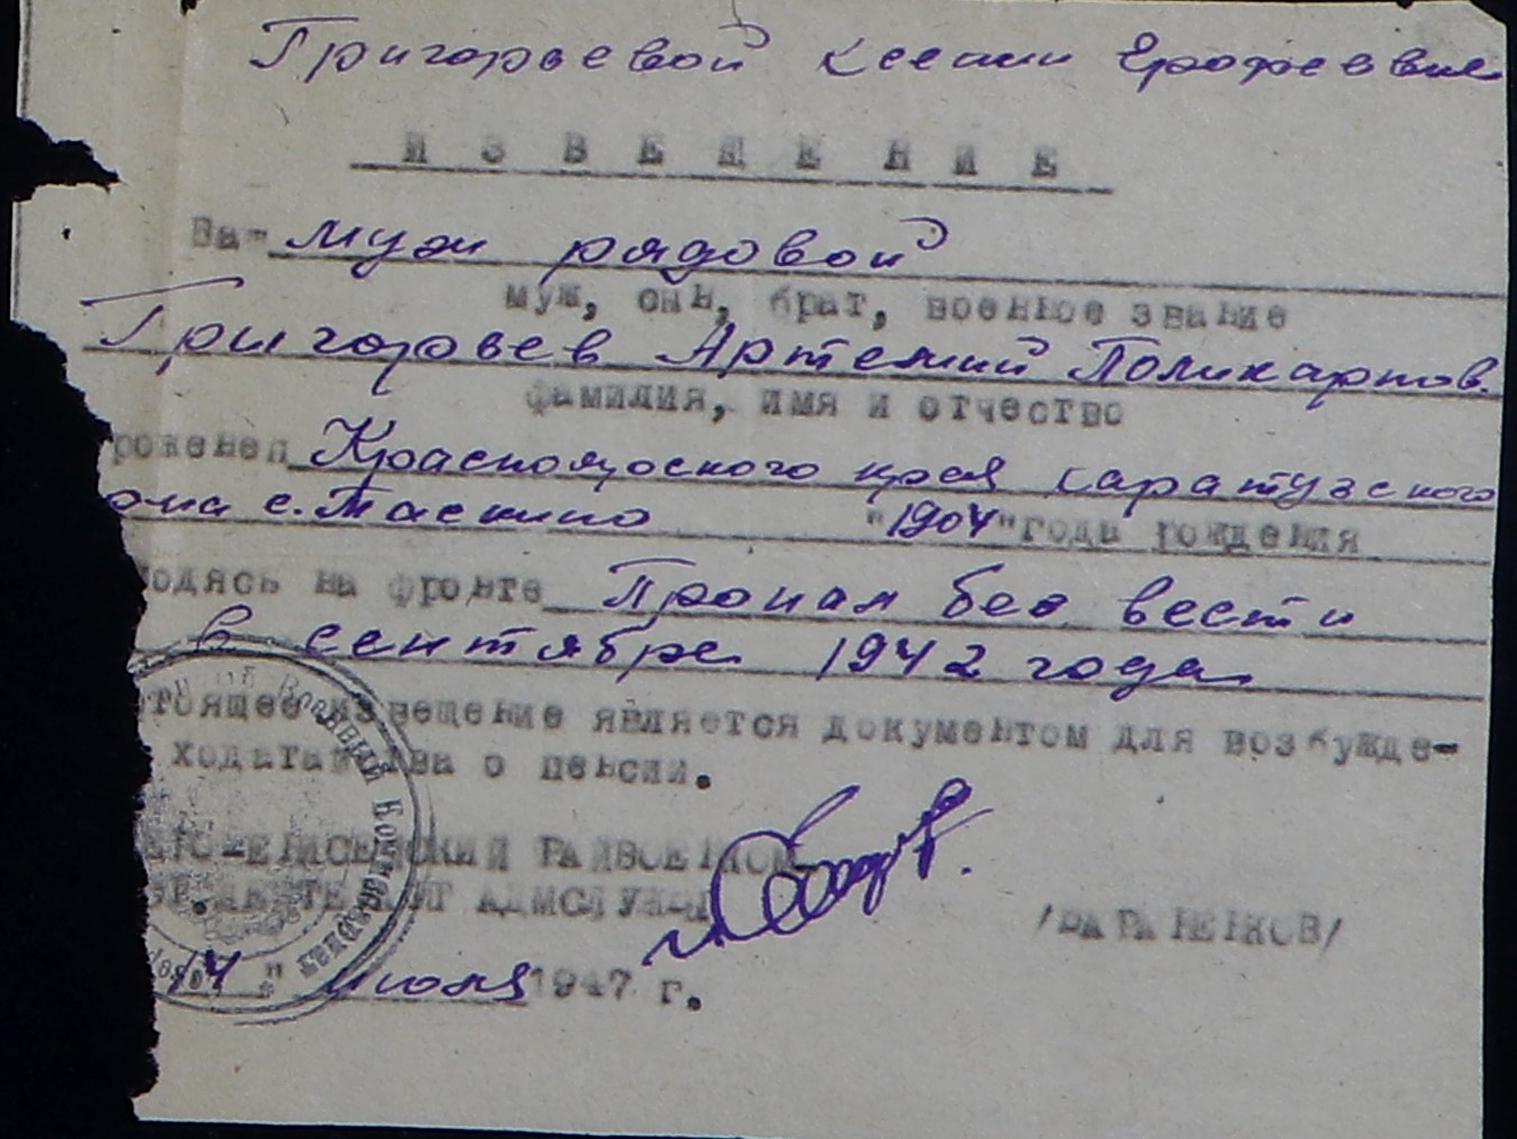 Григорьевой Ксении Ерофеевне
ИЗВЕЩЕНИЕ
Ва- муж рядовой
муж, сын, брат, военное звание
Григорьев Артемий Поликарпов.
фамилия, имя и отчество
роженец Красноярского края Каратузского
она с. Таскино "1904" года рождения
одясь на фронте Пропал без вести
в сентябре 1942 года
тоящее извещение является документом для возбужде-
ходатайства о пенсии.
ЕНИСЕЙСКИЙ РАЙВОЕНКОМ
АДМСЛУЖБЫ
14 " июля 1947 г.